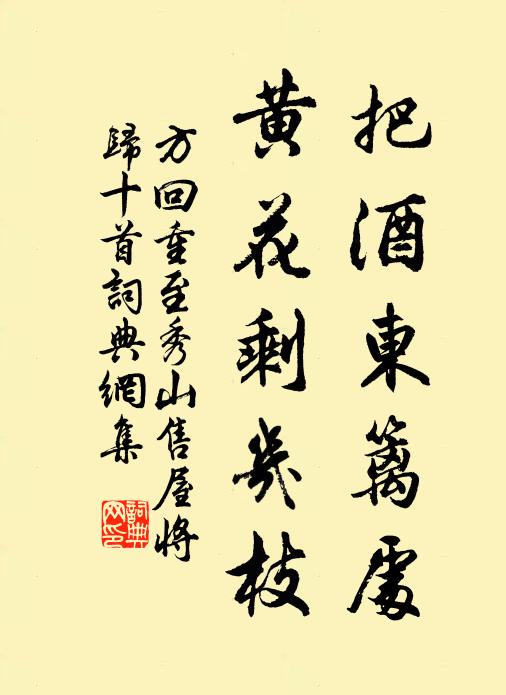 把酒東籬處
黃花剩幾枝
方回重至秀山售屋將
歸十首詞典網集
詞典
网印